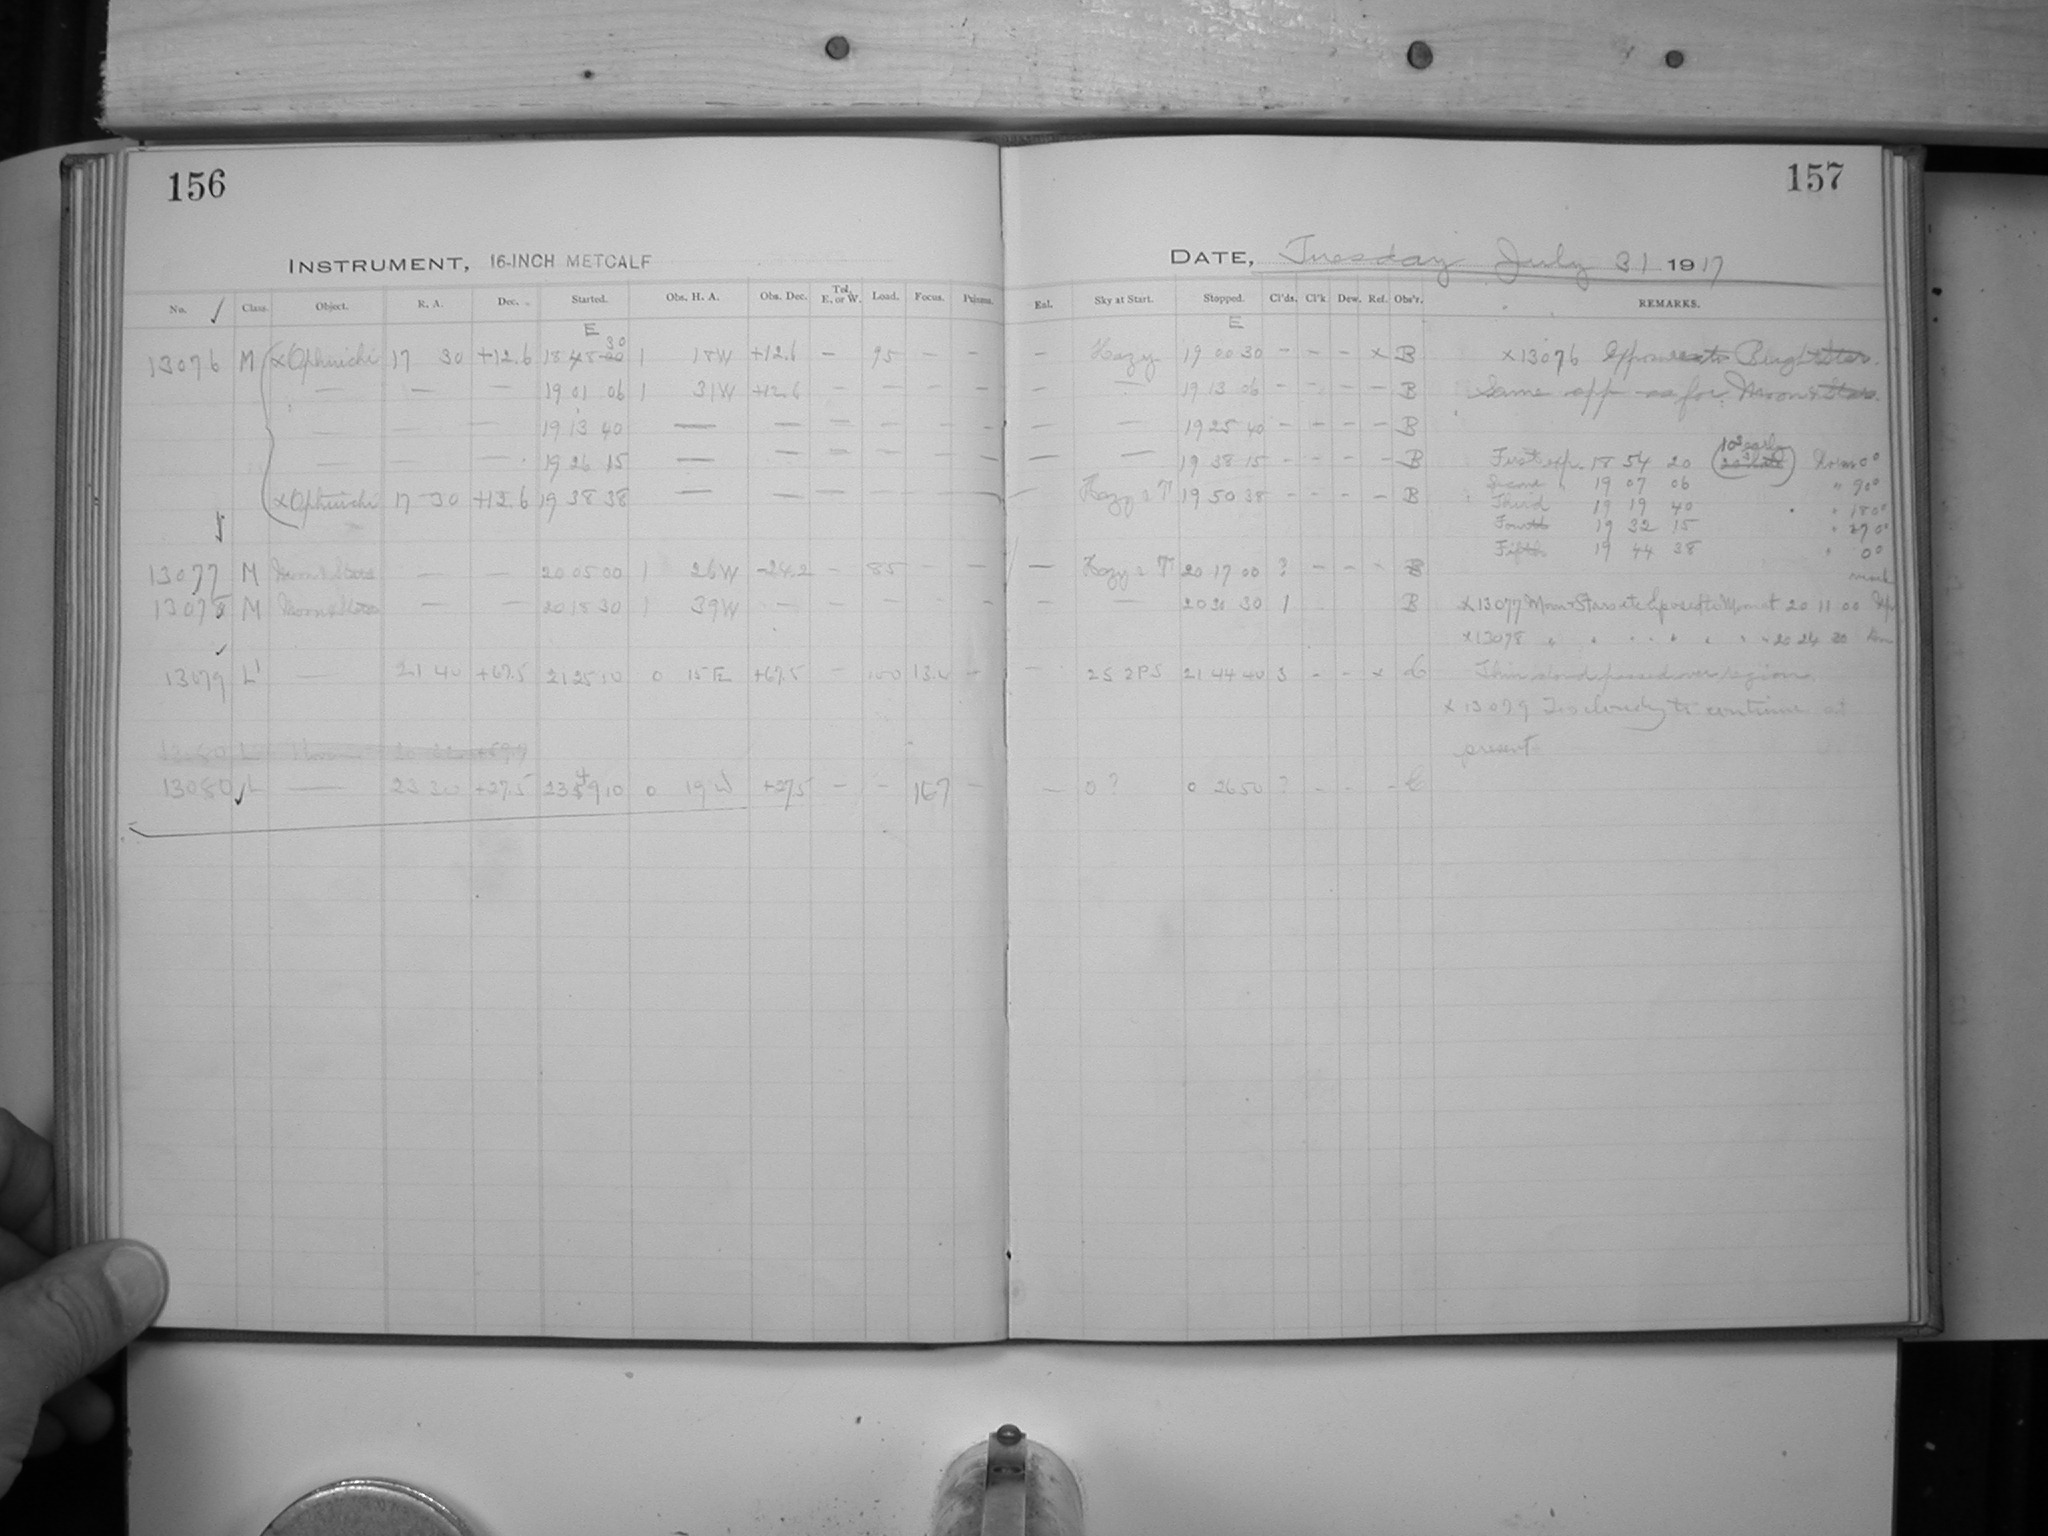 156
157
INSTRUMENT, 16-INCH METCALF
DATE, Tuesday July 31 1917
No. Class. Object. R. A. Dec. Started. Obs. H. A. Obs. Dec. Tel. E. or W. Load. Focus. Prisms.
Eal. Sky at Start. Stopped. Cl'ds. Cl'k Dew. Ref. Obs'r. REMARKS.
E
E
13076 M α Ophiuchi 17 30 +12.6 18 48 30 1 18W +12.6 — 95 — —
— Hazy 19 00 30 - - - x B x13076
— — 19 01 06 1 31W +12.6 — — — —
— — 19 13 06 - - - - B Same app as for Moon & Stars.
— — — 19 13 40 — — — — — —
— 19 25 40 - - - - B
— — — 19 26 15 — — — — — —
— — 19 38 15 - - - - B First exp. 18 54 20 (10s early) 0°
Second " 19 07 06 " 90°
α Ophiuchi 17 30 +12.6 19 38 38 — — — — — —
— 19 50 38 - - - - B Third 19 19 40 " 180°
Fourth 19 32 15 " 270°
Fifth 19 44 38 " 0°
13077 M Moon & Stars — — 20 05 00 1 26W -24.2 — 85 — —
— 20 17 00 ? - - - B
13078 M Moon & Stars — — 20 18 30 1 39W — — — — —
— — 20 30 30 1 B x13077 Moon & Stars etc Exposed to Moon at 20 11 00
x13078 " " " " " " " 20 24 30
13079 L' — 21 40 +67.5 21 25 10 0 15E +67.5 — 100 13.0 —
— 2S 2PS 21 44 40 3 - - x L Thin cloud passed over region.
x13079 Too cloudy to continue at
present
13080 L — 23 30 +27.5 23 49 10 0 19W +27.5 — — 167 —
— 0? 0 26 50 ? - - -